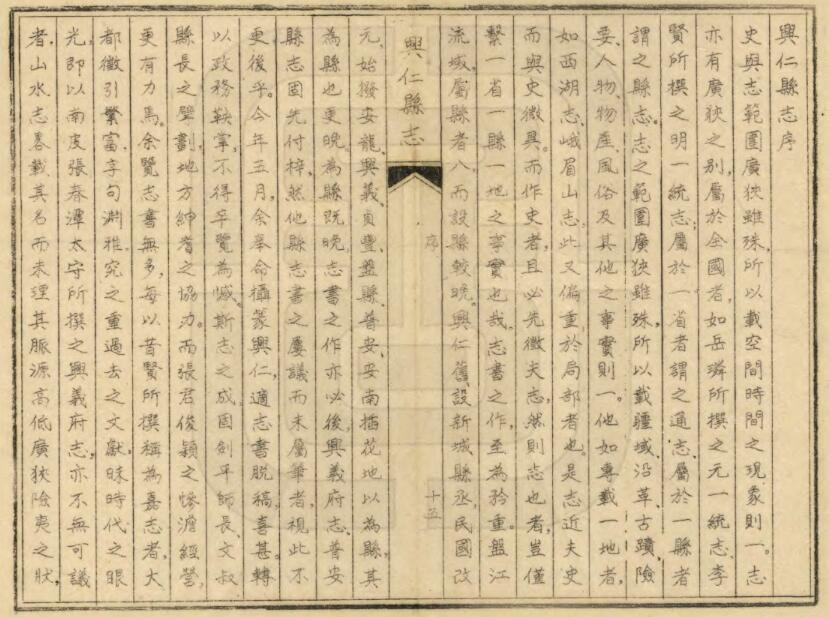 興仁縣志序
史與志範圍廣狹雖殊所以載空間時間之現象則一。志
亦有廣狹之别，屬於全國者，如岳璘所撰之元一統志、李
賢所撰之明一統志；屬於一省者謂之通志；屬於一縣者
謂之縣志。志之範圍廣狹雖殊，所以載疆域、沿革、古蹟、險
要、人物、物產、風俗及其他之事實則一。他如專載一地者，
如西湖志、峨眉山志，此又偏重於局部者也。是志近夫史
而與史微異。而作史者，且必先徵夫志，然則志也者，豈僅
繫一省一縣一地之事實也哉。志書之作，至為矜重。盤江
流域，屬縣者八，而設縣較晚。興仁舊設新城縣丞，民國改
興仁縣志
序
十五
元，始撥安龍、興義、貞豐、盤縣、普安、安南插花地以為縣，其
為縣也更晚，為縣既晚，志書之作亦必後，興義府志、普安
縣志固先付梓，然他縣志書之屢議而未屬筆者，視此不
更後乎。今年五月，余奉命攝篆興仁，適志書脱稿，喜甚。轉
以政務鞅掌，不得卒覽為憾。斯志之成，固劍平師長、文叔
縣長之擘劃，地方紳耆之協力。而張君俊穎之慘澹經營，
更有力焉。余覽志書無多，每以昔賢所撰稱為嘉志者，大
都徵引繁富，字句淵雅。究之重過去之文獻，昧時代之眼
光，即以南皮張春潭太守所撰之興義府志，亦不無可議
者，山水志畧載其名而未理其脈源高低廣狹險夷之狀，